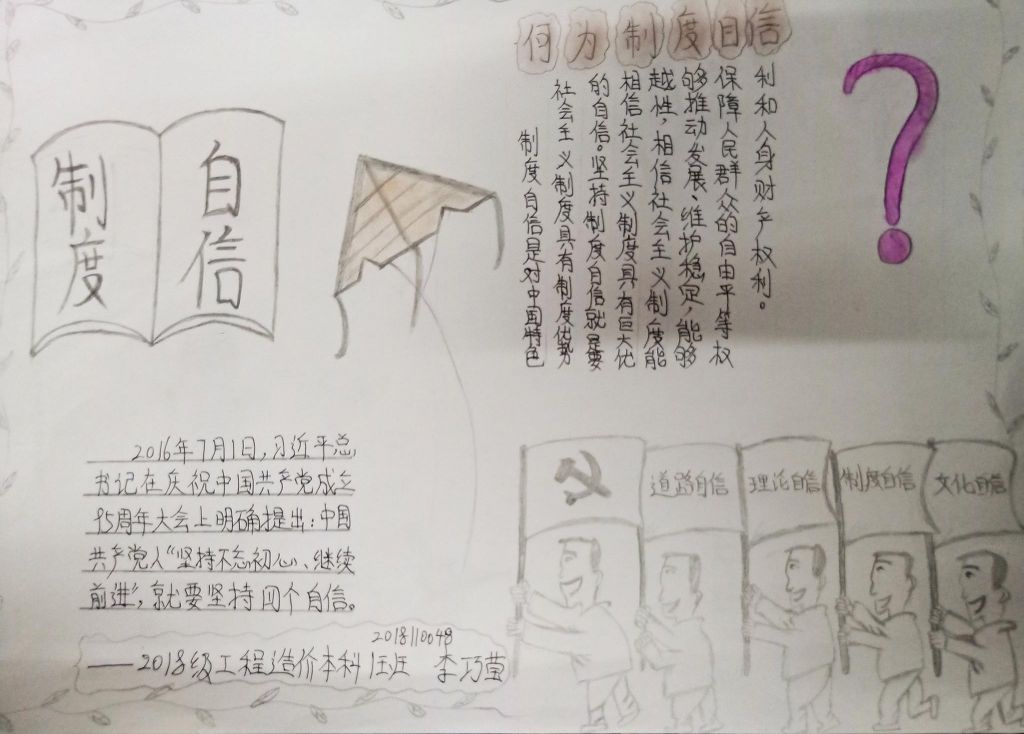 制度
自信
何为制度自信
制度自信是对中国特色
社会主义制度具有制度优势
的自信。坚持制度自信就是要
相信社会主义制度具有巨大优
越性,相信社会主义制度能
够推动发展、维护稳定,能够
保障人民群众的自由平等权
利和人身财产权利。
2016年7月1日,习近平总
书记在庆祝中国共产党成立
95周年大会上明确提出:中国
共产党人“坚持不忘初心、继续
前进”,就要坚持四个自信。
2018110048
——2018级工程造价本科 李巧莹
道路自信
理论自信
制度自信
文化自信